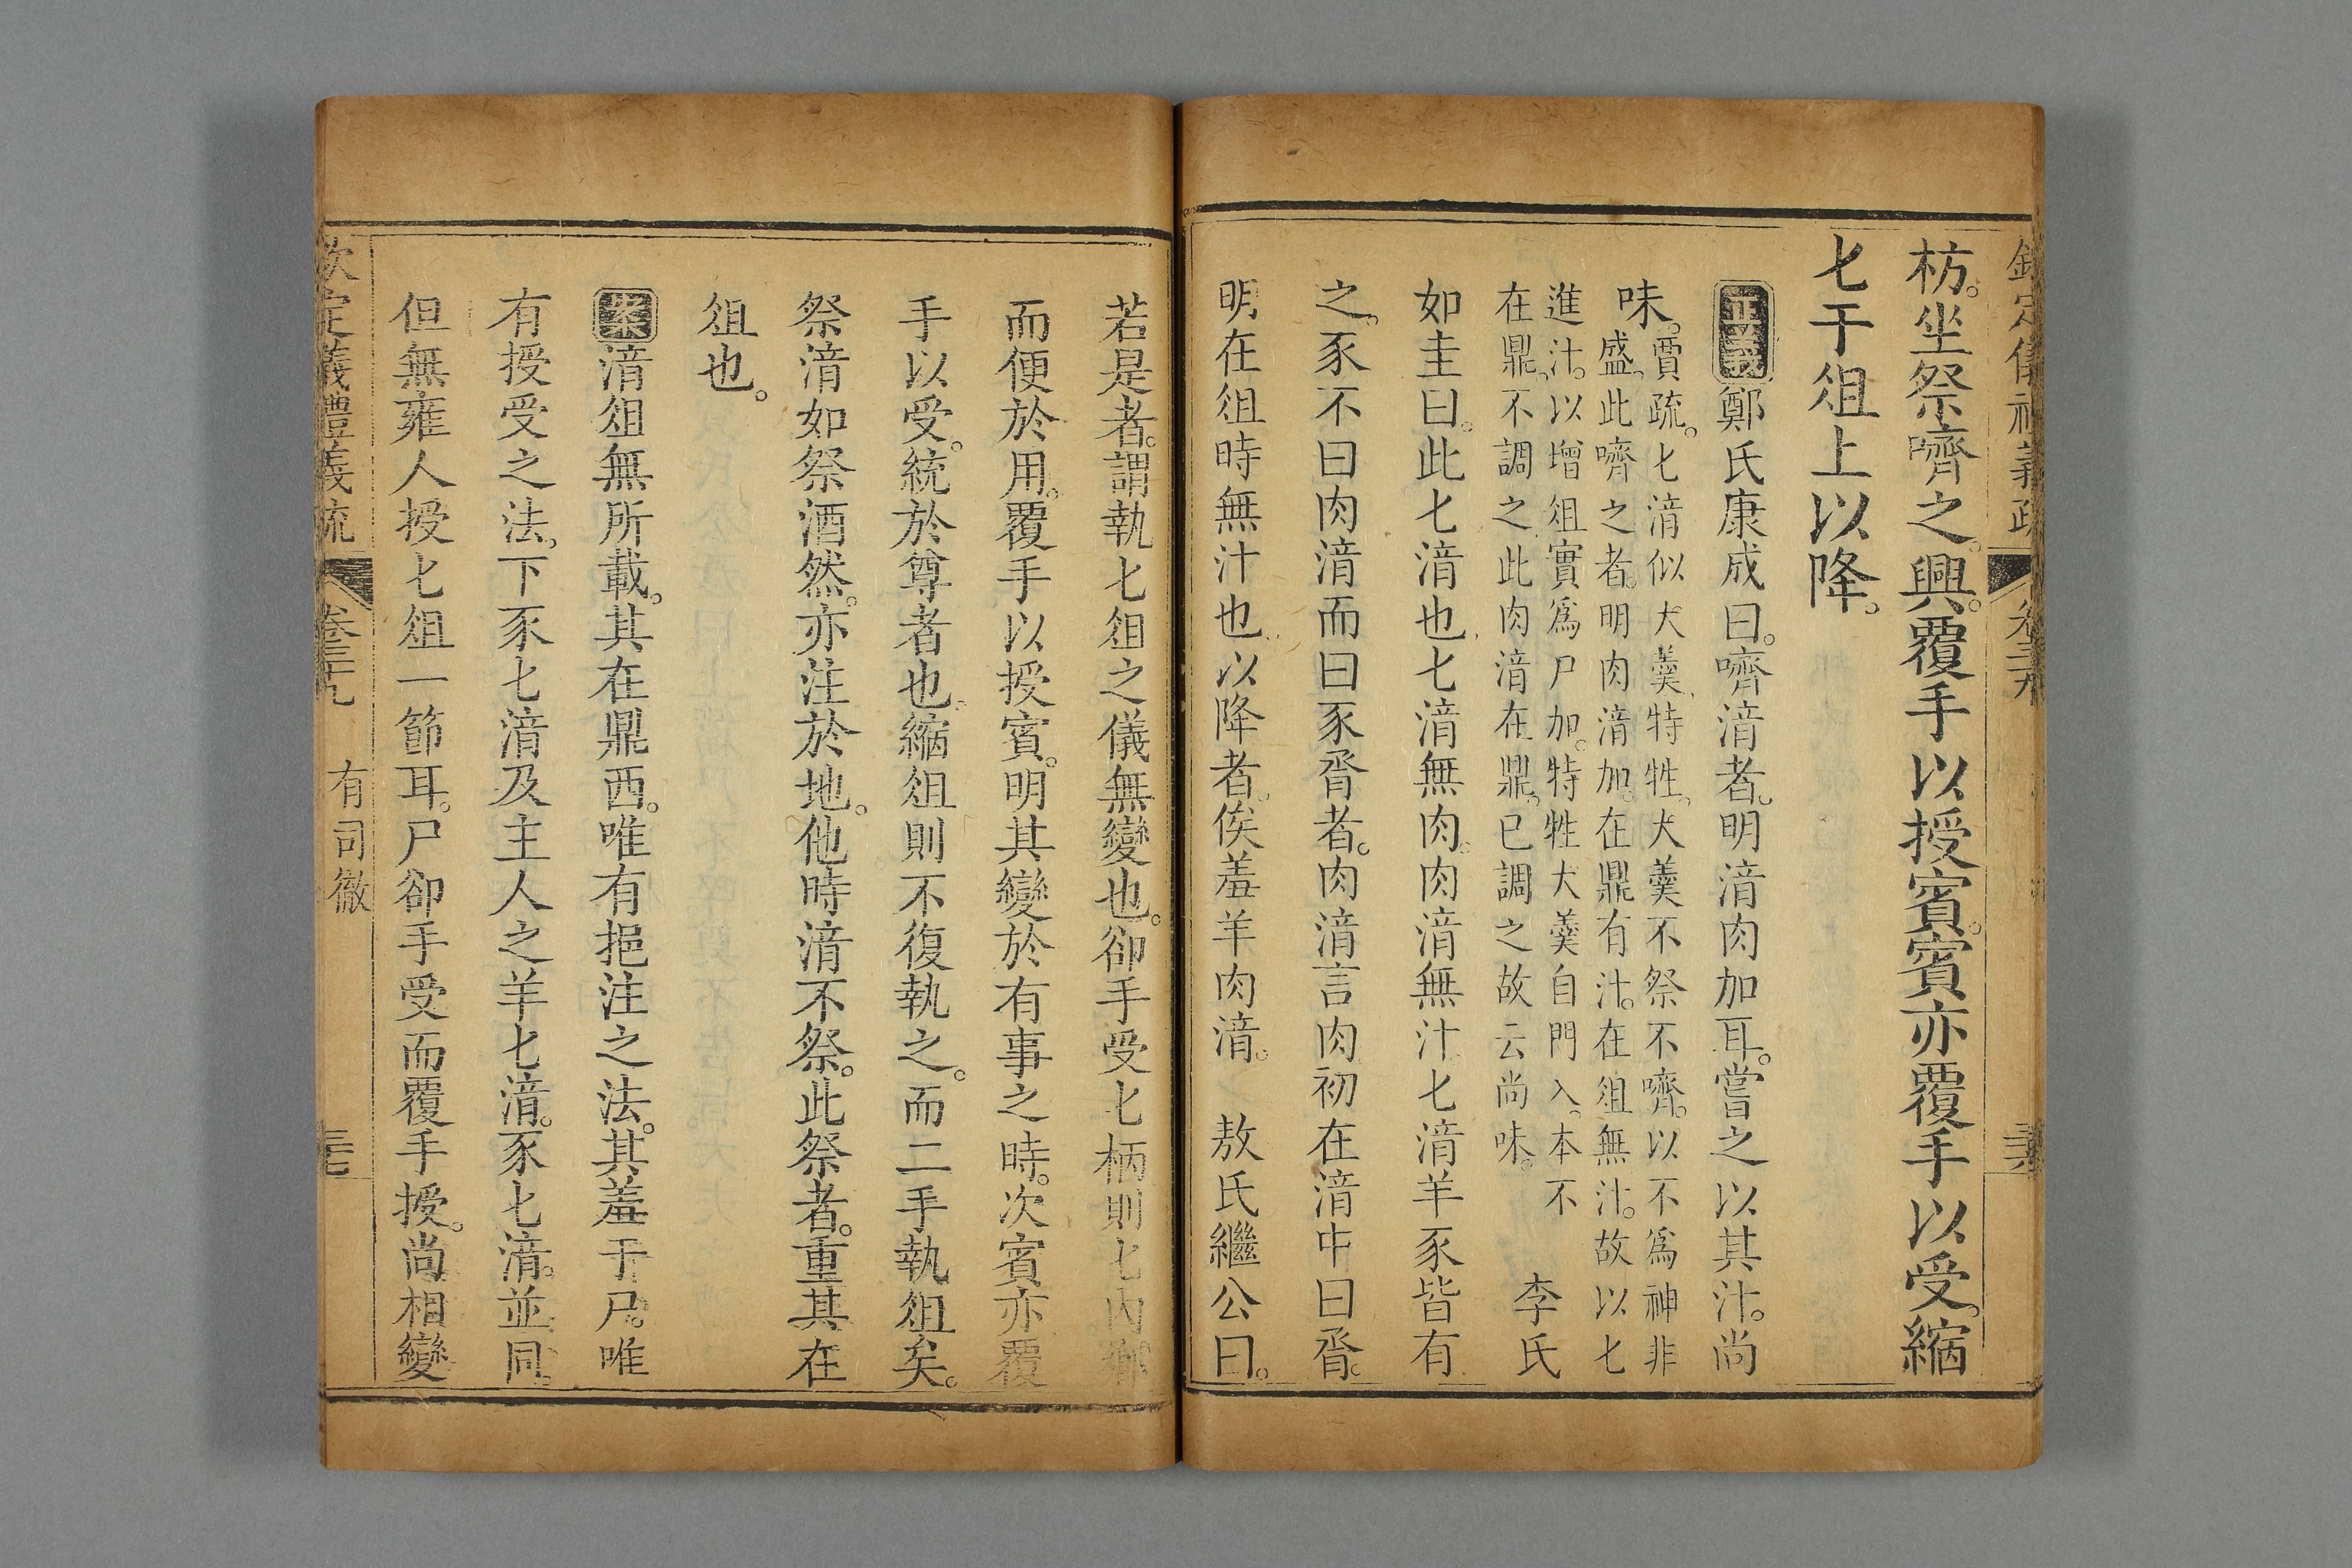 欽定儀禮義疏 卷三十九 三六
枋。坐祭嚌之。興。覆手以授賓。賓亦覆手以受。縮
匕于俎上以降。
正義鄭氏康成曰。嚌湆者。明湆肉加耳。嘗之以其汁。尚
味。賈疏。匕湆似大羹。特牲。大羹不祭不嚌。以不爲神非
盛。此嚌之者。明肉湆加。在鼎有汁。在俎無汁。故以匕
進汁。以增俎實爲尸加。特牲大羹自門入。本不
在鼎。不調之。此肉湆在鼎。已調之故云尚味。
李氏
如圭曰。此匕湆也。匕湆無肉。肉湆無汁匕湆羊豕皆有
之。豕不曰肉湆而曰豕脀者。肉湆言肉初在湆中曰脀。
明在俎時無汁也。以降者。俟羞羊肉湆。 敖氏繼公曰。
若是者。謂執匕俎之儀無變也。卻手受匕柄則匕內鄉
而便於用。覆手以授賓。明其變於有事之時。次賓亦覆
手以受。統於尊者也。縮俎則不復執之。而二手執俎矣。
祭湆如祭酒然。亦注於地。他時湆不祭。此祭者。重其在
俎也。
案湆俎無所載。其在鼎西。唯有挹注之法。其羞于尸。唯
有授受之法。下豕匕湆及主人之羊匕湆。豕匕湆。並同。
但無雍人授匕俎一節耳。尸卻手受而覆手授。尚相變
欽定儀禮義疏 卷三十九 有司徹 三七